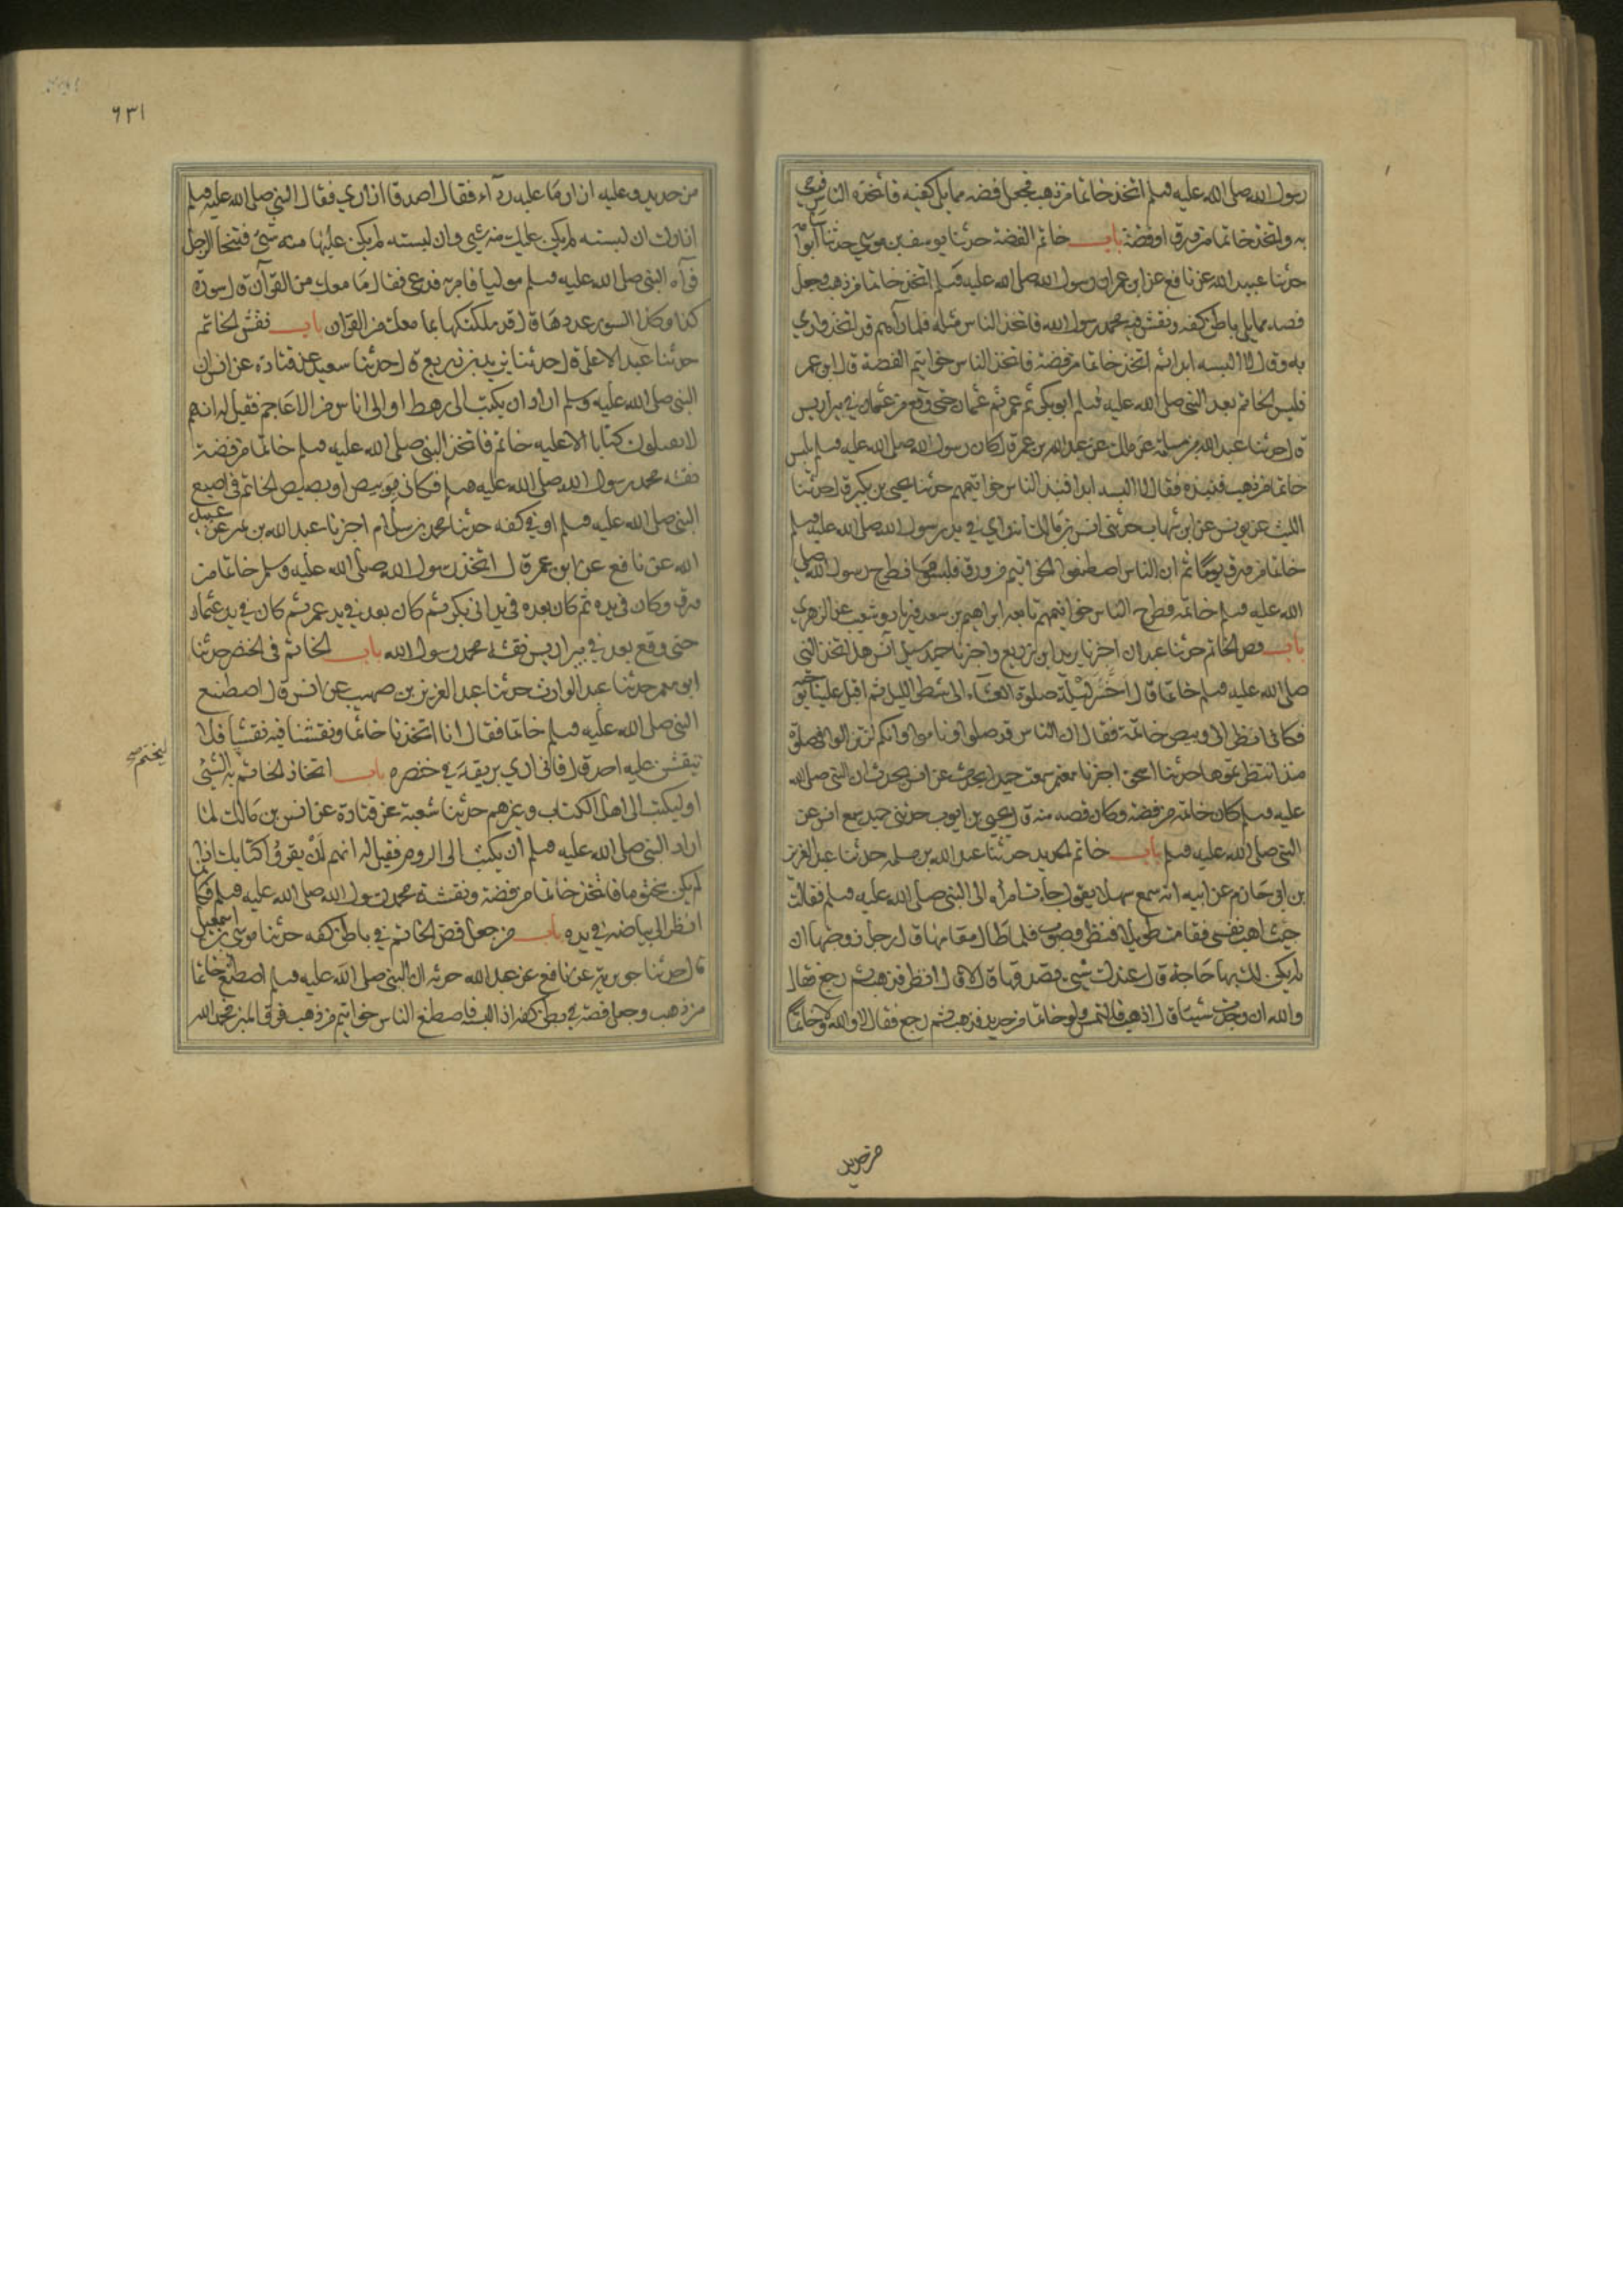 رسول الله صلى الله عليه وسلم اتخذ خاتما من ذهب فجعل فصه مما يلي كفه فاتخذه الناس فرمى
به واتخذ خاتما من ورق او فضة باب خاتم الفضة حدثنا يوسف بن موسى حدثنا ابو اسامة
حدثنا عبيد الله عن نافع عن ابن عمر ان رسول الله صلى الله عليه وسلم اتخذ خاتما من ذهب وجعل
فصه مما يلي باطن كفه ونقش فيه محمد رسول الله فاتخذ الناس مثله فلما رآهم قد اتخذوا رمى
به وقال لا البسه ابدا ثم اتخذ خاتما من فضة فاتخذ الناس خواتيم الفضة قال ابن عمر
فلبس الخاتم بعد النبي صلى الله عليه وسلم ابو بكر ثم عمر ثم عثمان حتى وقع من عثمان في بير اريس
قال حدثنا عبد الله بن مسلمة عن مالك عن عبد الله بن عمر قال كان رسول الله صلى الله عليه وسلم يلبس
خاتما من ذهب فنبذه فقال لا البسه ابدا فنبذ الناس خواتيمهم حدثنا يحيى بن بكير قال حدثنا
الليث عن يونس عن ابن شهاب حدثني انس بن مالك انه راي في يد رسول الله صلى الله عليه وسلم
خاتما من ورق يوما ثم ان الناس اصطنعوا الخواتيم من ورق فلبسوها فطرح رسول الله صلى
الله عليه وسلم خاتمه فطرح الناس خواتيمهم تابعه ابراهيم بن سعد وزياد وشعيب عن الزهري
باب فص الخاتم حدثنا عبدان اخبرنا يزيد ابن زريع واخبرنا حميد سئل انس هل اتخذ النبي
صلى الله عليه وسلم خاتما قال اخر ليلة صلوة العشاء الى شطر الليل ثم اقبل علينا بوجهه
فكاني انظر الى وبيص خاتمه فقال ان الناس قد صلوا وناموا وانكم لن تزالوا في صلوة
منذ انتظرتموها حدثنا اسحق اخبرنا معتمر سمعت حميدا يحدث عن انس يحدث ان النبي صلى الله
عليه وسلم كان خاتمه من فضة وكان فصه منه قال يحيى بن ايوب حدثني حميد سمع انس عن
النبي صلى الله عليه وسلم باب خاتم الحديد حدثنا عبد الله بن مسلمه حدثنا عبد العزيز
بن ابي حازم عن ابيه انه سمع سهلا يقول جاءت امراه الى النبي صلى الله عليه وسلم فقالت
جيت اهب نفسي فقامت طويلا فنظر وصوب فلما طال مقامها قال رجل زوجنيها ان
لم يكن لك بها حاجة قال عندك شيء تصدقها قال لا قال انظر فذهب ثم رجع فقال
والله ان وجدت شيئا قال اذهب فالتمس ولو خاتما من حديد فذهب ثم رجع فقال لا والله ولا خاتما
من حديد
٦٣١
من حديد وعليه ازار ما عليه رداء فقال اصدقها ازاري فقال النبي صلى الله عليه وسلم
ازارك ان لبسته لم يكن عليك منه شي وان لبسته لم يكن عليها منه شي فتنحا الرجل
فرآه النبي صلى الله عليه وسلم موليا فامر به فدعي فقال ما معك من القرآن قال سورة
كذا وكذا السور عددها قال قد ملكتكها بما معك من القرآن باب نقش الخاتم
حدثنا عبد الاعلى قال حدثنا يزيد بن زريع قال حدثنا سعيد عن قتادة عن انس ان
النبي صلى الله عليه وسلم اراد ان يكتب الى رهط او الى اناس من الاعاجم فقيل له انهم
لا يقبلون كتابا الا عليه خاتم فاتخذ النبي صلى الله عليه وسلم خاتما من فضة
نقشه محمد رسول الله صلى الله عليه وسلم فكاني بوبيص او بصيص الخاتم في اصبع
النبي صلى الله عليه وسلم او في كفه حدثنا محمد بن سلام اخبرنا عبد الله بن نمير عن عبيد
الله عن نافع عن ابن عمر قال اتخذ رسول الله صلى الله عليه وسلم خاتما من
ورق وكان في يده ثم كان بعده في يد ابي بكر ثم كان بعد في يد عمر ثم كان في يد عثمان
حتى وقع بعد في بير اريس نقشه محمد رسول الله باب الخاتم في الخنصر حدثنا
ابو معمر حدثنا عبد الوارث حدثنا عبد العزيز بن صهيب عن انس قال اصطنع
النبي صلى الله عليه وسلم خاتما فقال انا اتخذنا خاتما ونقشنا فيه نقشا فلا
ينقش عليه احد قال فاني اري بريقه في خنصره باب اتخاذ الخاتم به الشئ
ليختم صح
او ليكتب الى اهل الكتاب وغيرهم حدثنا شعبة عن قتادة عن انس بن مالك لما
اراد النبي صلى الله عليه وسلم ان يكتب الى الروم فقيل له انهم لن يقرؤا كتابك اذا
لم يكن مختوما فاتخذ خاتما من فضة ونقشه محمد رسول الله صلى الله عليه وسلم فكانما
انظر الى بياضه في يده باب من جعل فص الخاتم في باطن كفه حدثنا موسى بن اسمعيل
قال حدثنا جويرية عن نافع عن عبد الله حدثه ان النبي صلى الله عليه وسلم اصطنع خاتما
من ذهب وجعل فصه في بطن كفه اذا لبسه فاصطنع الناس خواتيم من ذهب فرقى المنبر فحمد الله